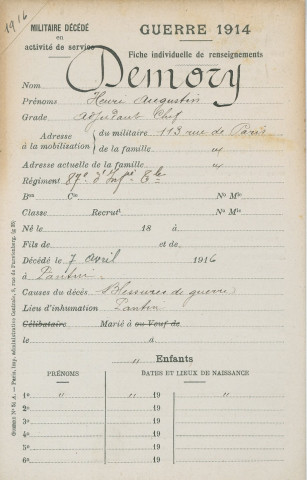 1916
MILITAIRE DÉCÉDÉ
en
activité de service
GUERRE 1914
Fiche individuelle de renseignements
Nom Demory
Prénoms Henri Augustin
Grade Adjudant Chef
Adresse à la mobilisation du militaire 113 rue de Paris
de la famille "
Adresse actuelle de la famille "
Régiment 87e d'Infie Tle
Bon Cie No Mle
Classe Recrut No Mle
Né le 18 à
Fils de et de
Décédé le 7 avril 1916
à Pantin
Causes du décès Blessures de guerre
Lieu d'inhumation Pantin
Célibataire Marié à ou Veuf de
le à
" Enfants
PRÉNOMS DATES ET LIEUX DE NAISSANCE
1o " " 19 "
2o 19
3o 19
4o 19
5o 19
6o 19